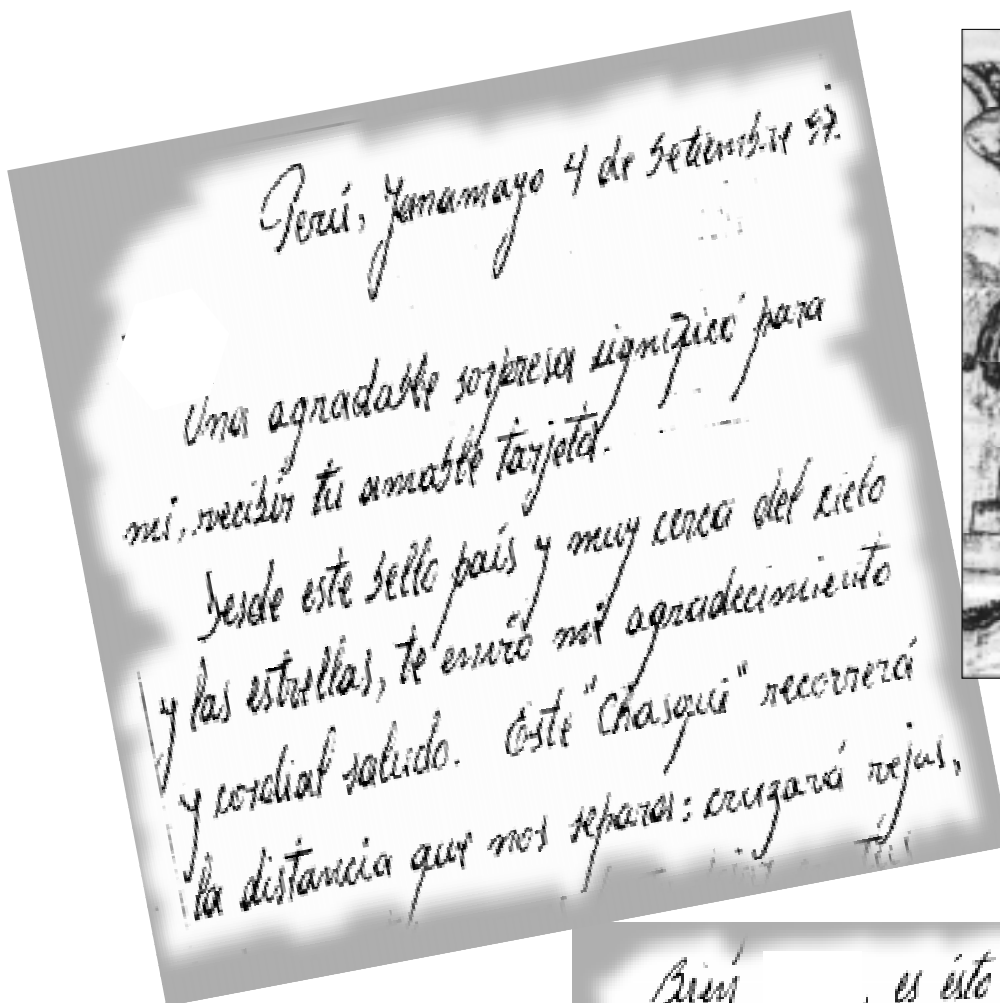 Perú, Yanamayo 4 de Setiembre 97.
Una agradable sorpresa significó para
mi, recibir tu amable tarjeta.
Desde este bello país y muy cerca del cielo
y las estrellas, te envío mi agradecimiento
y cordial saludo. Este "Chasqui" recorrerá
la distancia que nos separa: cruzará rejas,
Bien , es ésto